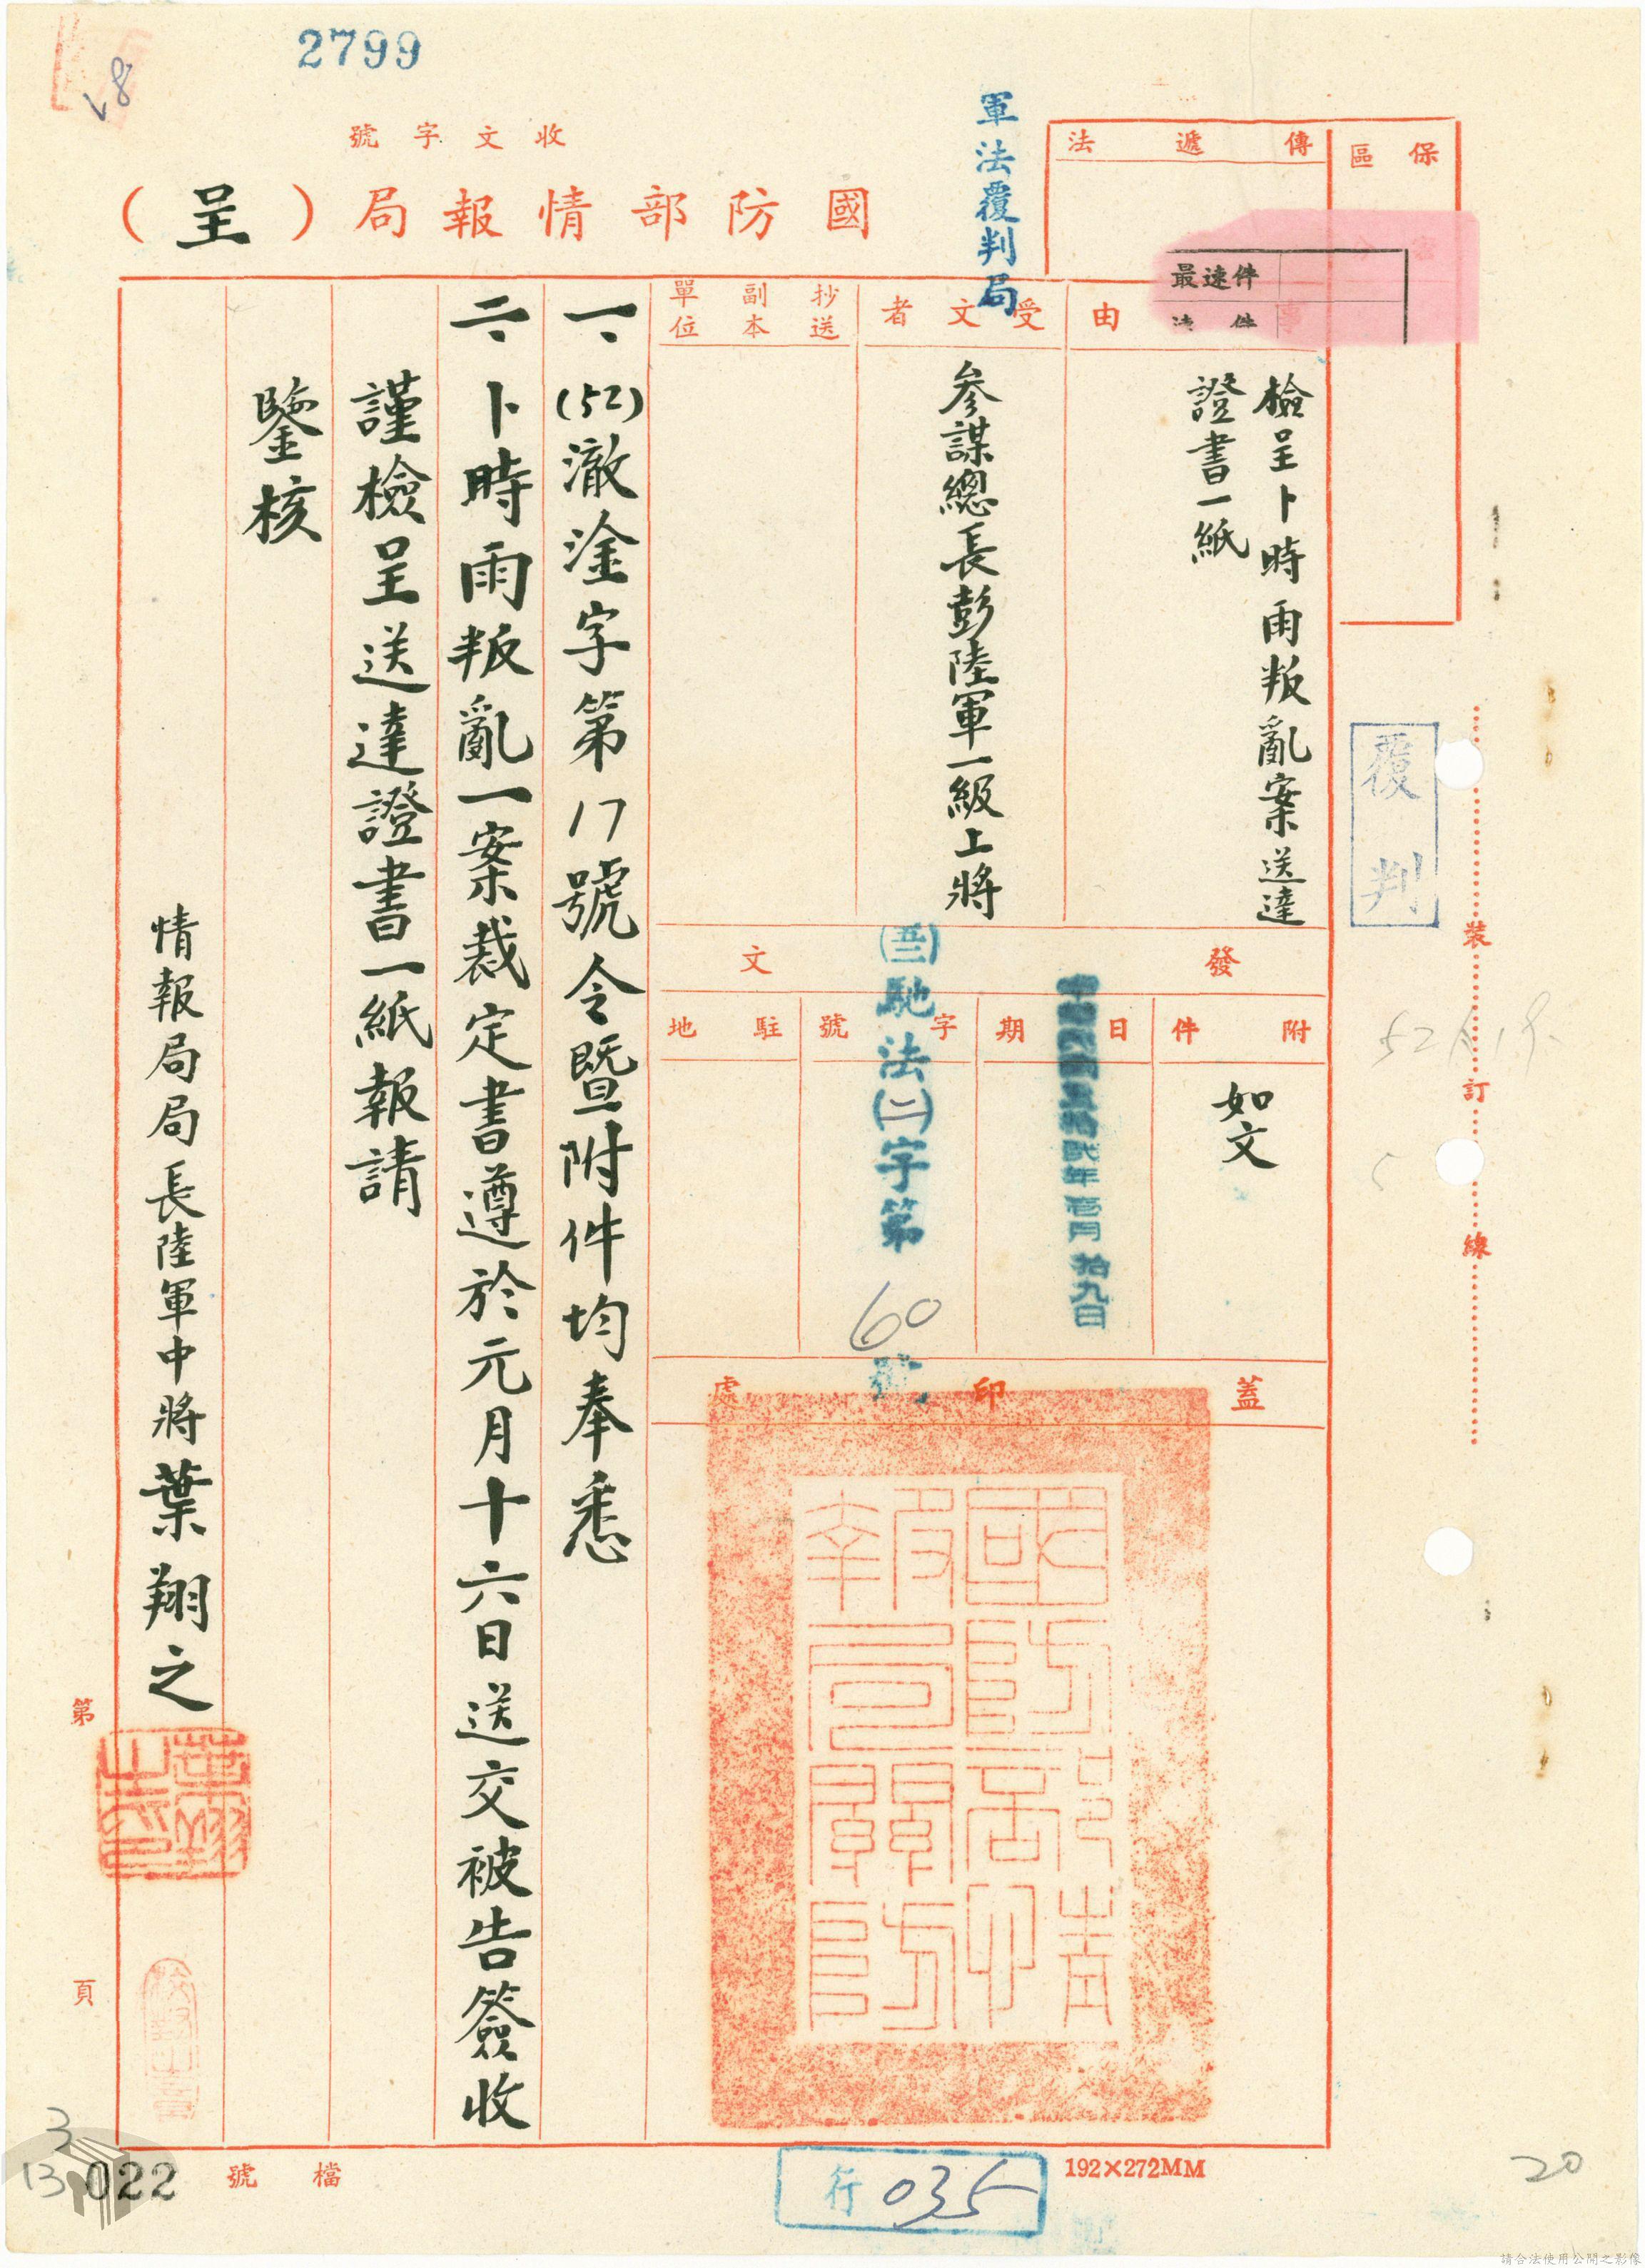 2799
收文字號
國防部情報局（呈）
軍法覆判局
保區
傳遞法
最速件
速件
由
檢呈卜時雨叛亂案送達
證書一紙
受文者
參謀總長彭陸軍一級上將
抄送副本單位
發文
附件
如文
日期
中華民國五拾貳年壹月拾九日
字號
(五二)馳法(二)字第60號
駐地
蓋印處
國防部情報局關防
一、(52)澈淦字第17號令暨附件均奉悉
二、卜時雨叛亂一案裁定書遵於元月十六日送交被告簽收
謹檢呈送達證書一紙報請
鑒核
情報局局長陸軍中將葉翔之
覆判
裝訂線
第
頁
檔號
022
3
13
行035
192×272MM
20
請合法使用公開之影像